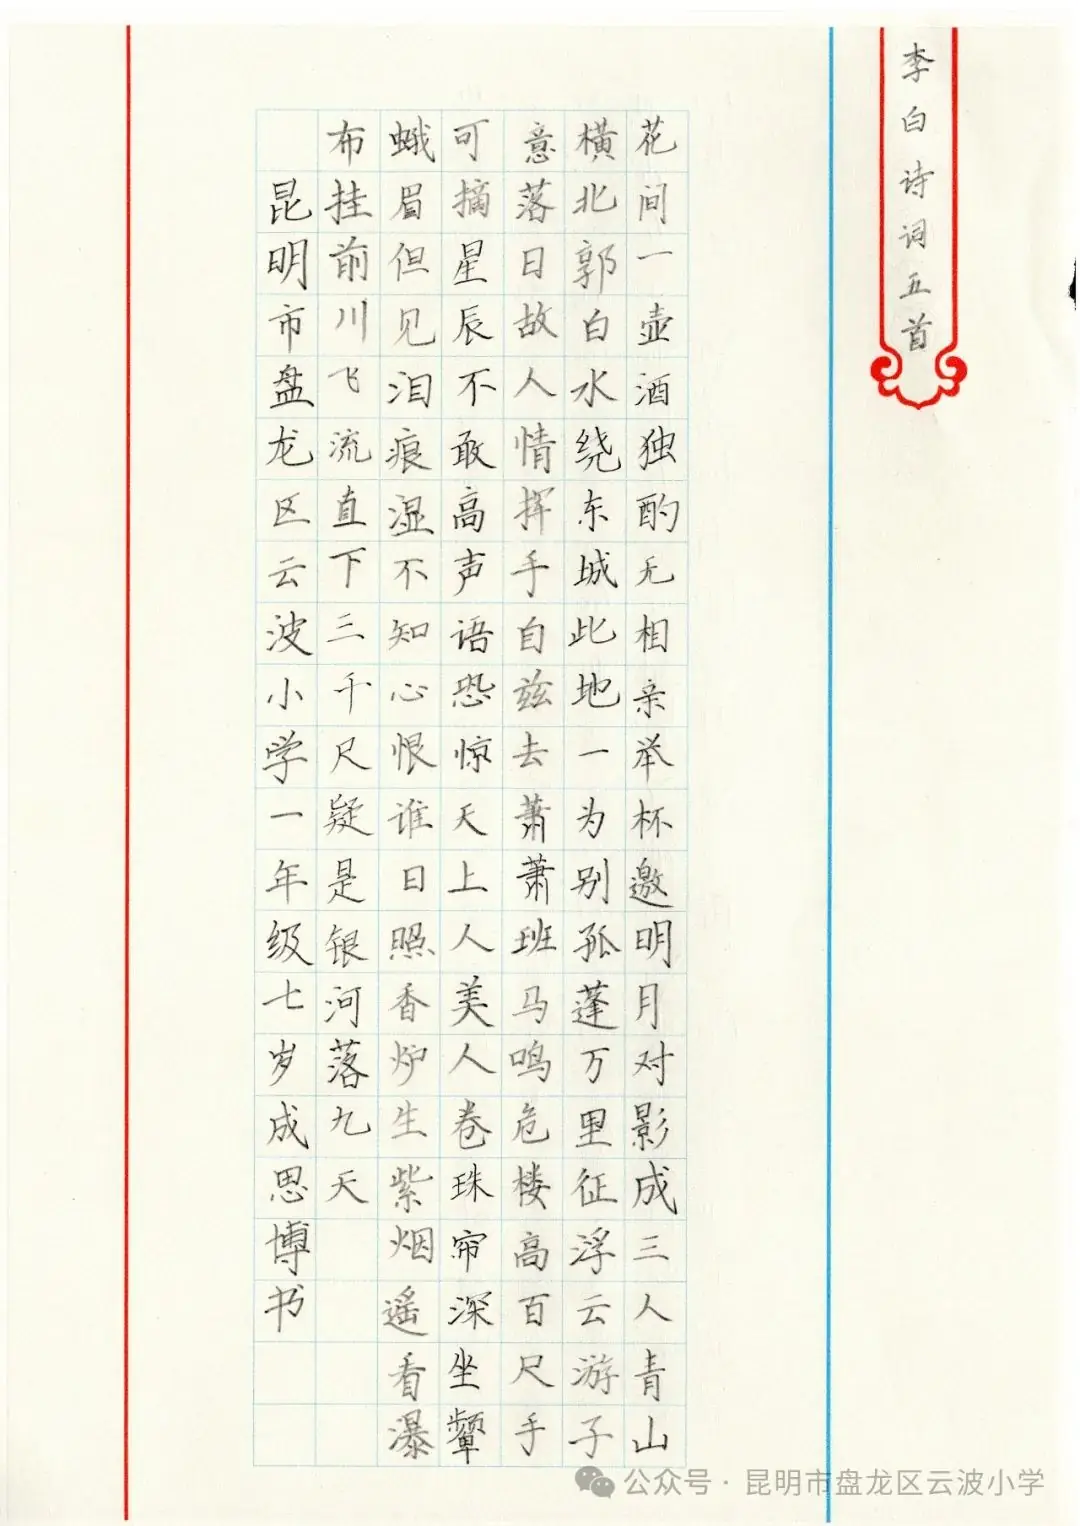 李白诗词五首
花间一壶酒独酌无相亲举杯邀明月对影成三人青山
横北郭白水绕东城此地一为别孤蓬万里征浮云游子
意落日故人情挥手自兹去萧萧班马鸣危楼高百尺手
可摘星辰不敢高声语恐惊天上人美人卷珠帘深坐颦
蛾眉但见泪痕湿不知心恨谁日照香炉生紫烟遥看瀑
布挂前川飞流直下三千尺疑是银河落九天
昆明市盘龙区云波小学一年级七岁成思博书
公众号·昆明市盘龙区云波小学